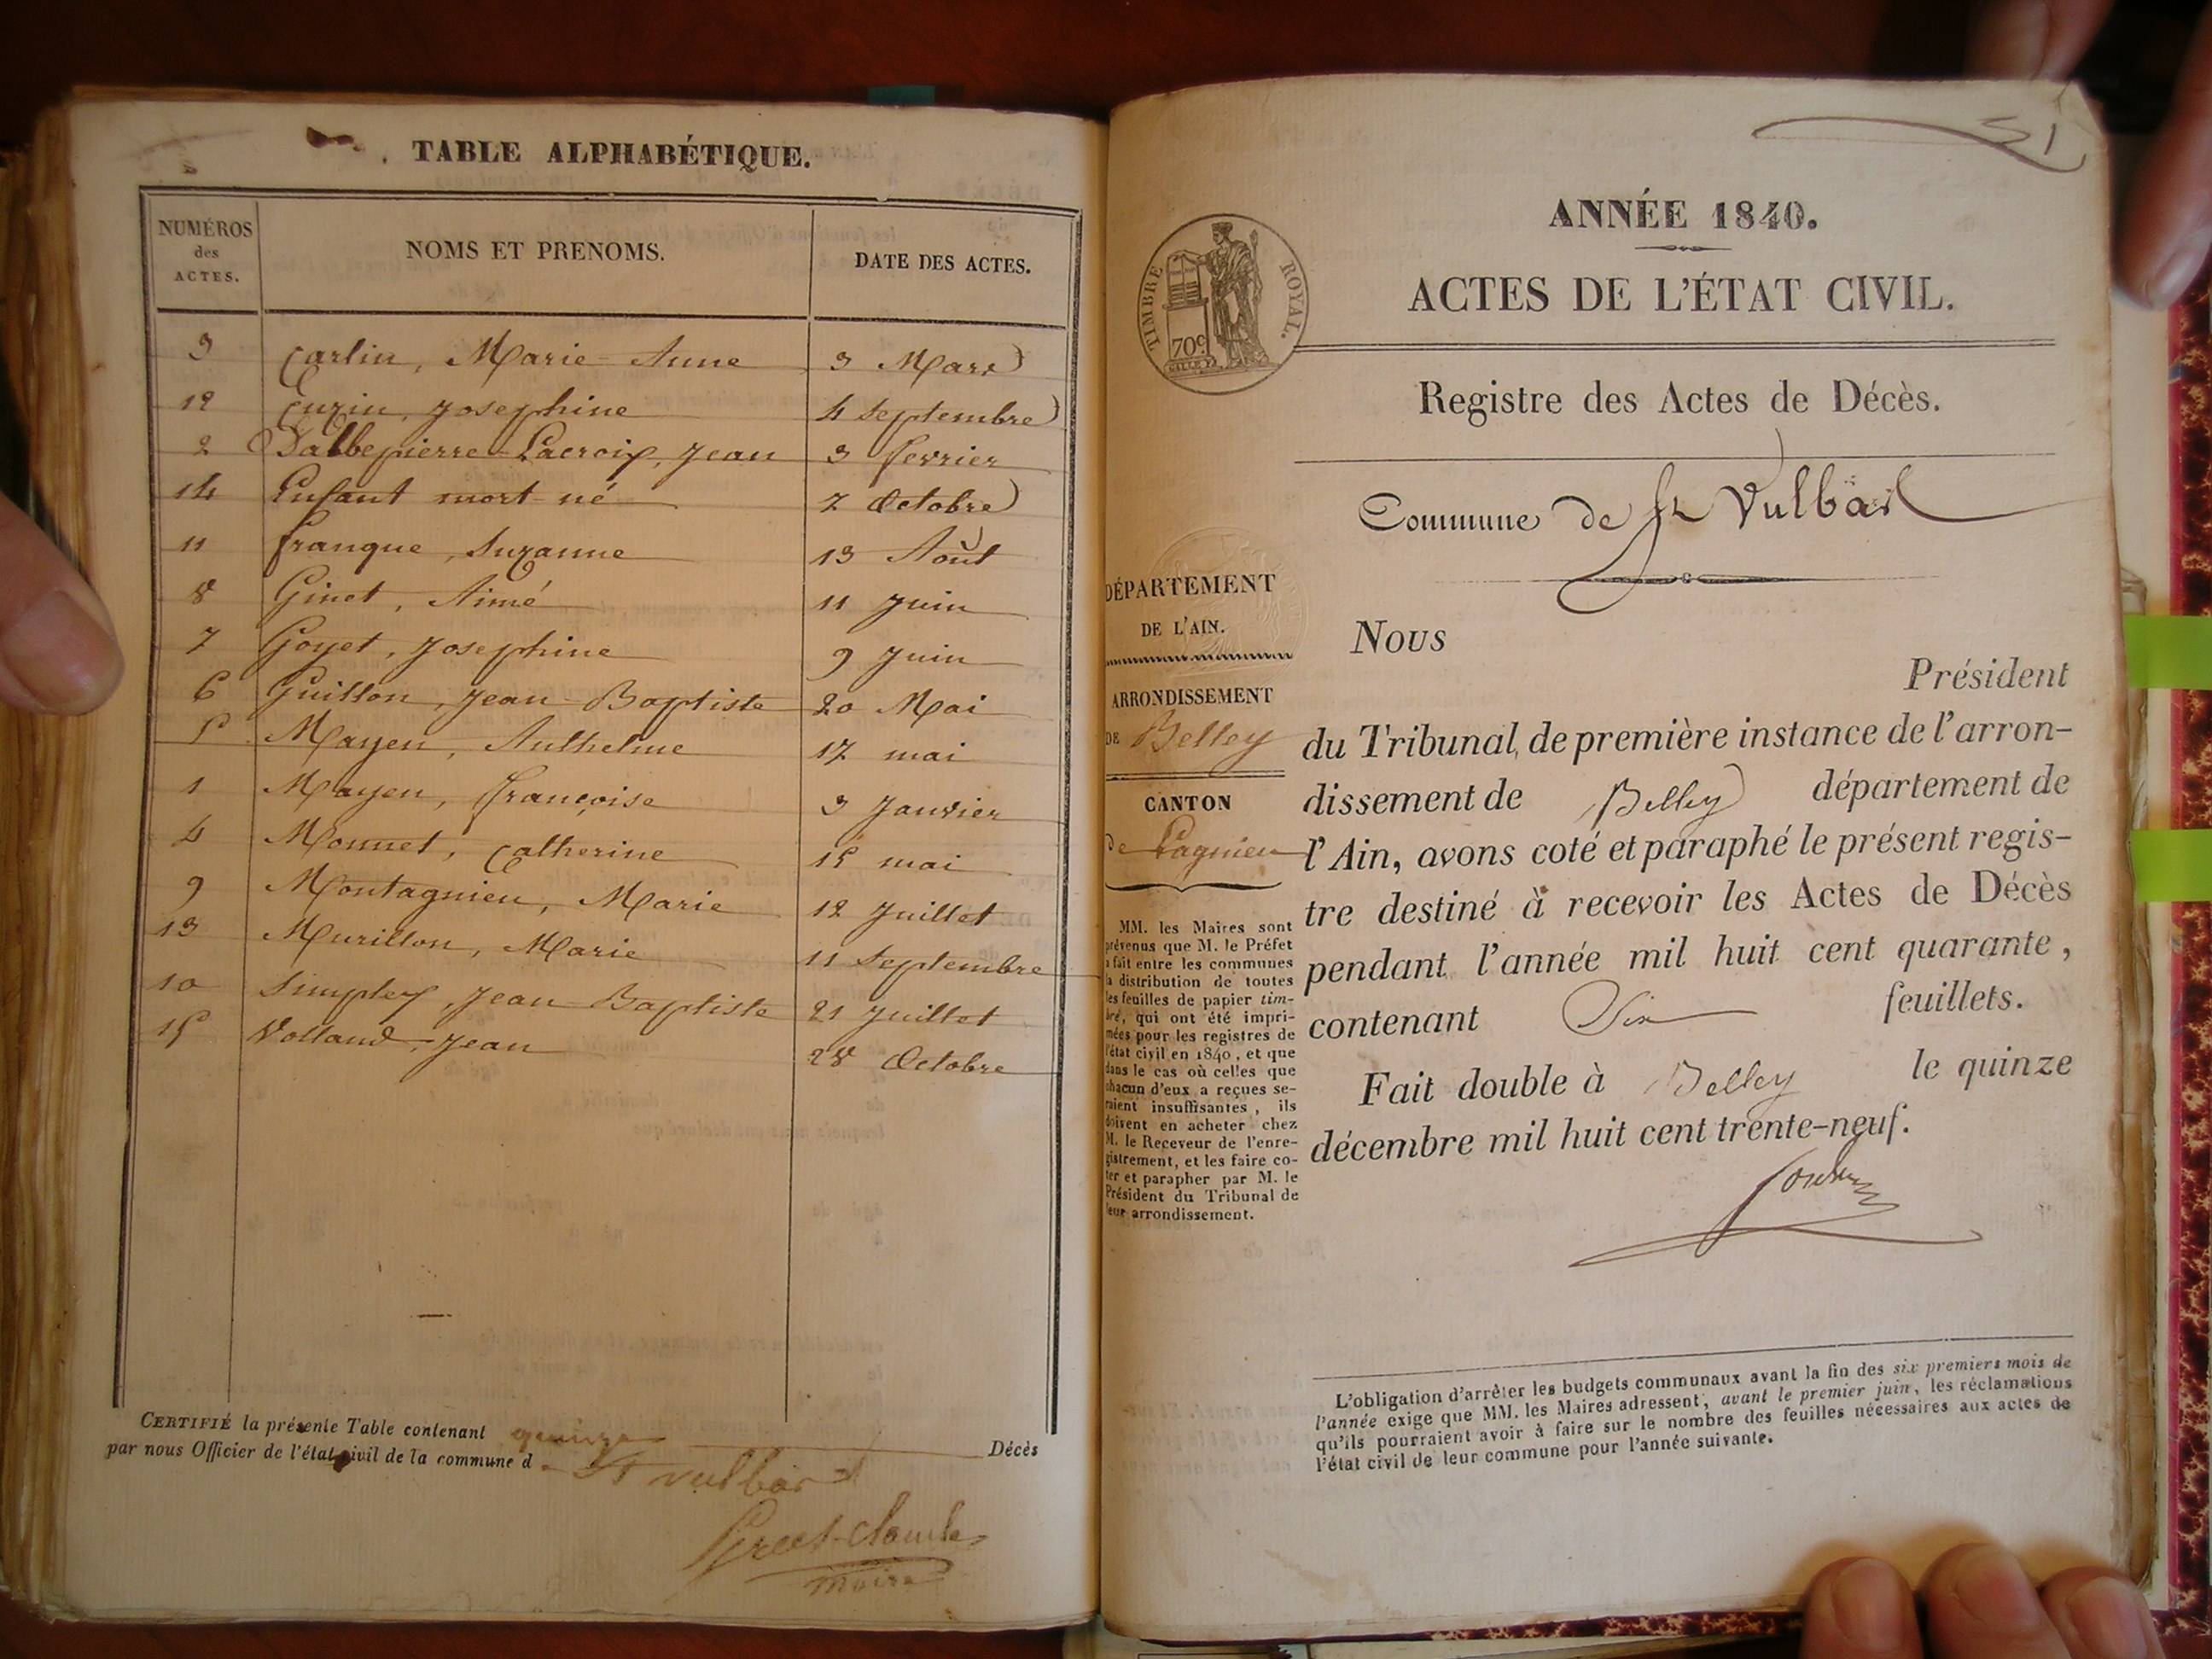 TABLE ALPHABÉTIQUE.
NUMÉROS des ACTES. NOMS ET PRENOMS. DATE DES ACTES.
3 Carlin, Marie-Anne 3 Mars
12 Cuzin, Josephine 4 Septembre
2 Dalbepierre-Lacroix, Jean 3 fevrier
14 Enfant mort-né 7 Octobre
11 franque, Suzanne 13 Août
8 Ginet, Aimé 11 Juin
7 Goyet, Josephine 9 Juin
6 Guillon, Jean-Baptiste 20 Mai
5 Mayen, Anthelme 17 mai
1 Mayen, françoise 3 Janvier
4 Monnet, Catherine 15 mai
9 Montagnieu, Marie 12 Juillet
13 Murillon, Marie 11 Septembre
10 Simplex, Jean-Baptiste 21 Juillet
15 Volland, Jean 28 Octobre
CERTIFIÉ la présente Table contenant quinze Décès
par nous Officier de l'état civil de la commune d e St vulbard
Claude
maire
51
ANNÉE 1840.
ACTES DE L'ÉTAT CIVIL.
TIMBRE ROYAL.
70c
Registre des Actes de Décès.
Commune de St Vulbas
DÉPARTEMENT
DE L'AIN.
ARRONDISSEMENT
DE Belley
CANTON
de Lagnieu
MM. les Maires sont
prévenus que M. le Préfet
a fait entre les communes
la distribution de toutes
les feuilles de papier tim-
bré, qui ont été impri-
mées pour les registres de
l'état civil en 1840, et que
dans le cas où celles que
chacun d'eux a reçues se-
raient insuffisantes, ils
doivent en acheter chez
M. le Receveur de l'enre-
gistrement, et les faire co-
ter et parapher par M. le
Président du Tribunal de
leur arrondissement.
Nous
Président
du Tribunal, de première instance de l'arron-
dissement de Belley département de
l'Ain, avons coté et paraphé le présent regis-
tre destiné à recevoir les Actes de Décès
pendant l'année mil huit cent quarante,
contenant Six feuillets.
Fait double à Belley le quinze
décembre mil huit cent trente-neuf.
L'obligation d'arrêter les budgets communaux avant la fin des six premiers mois de
l'année exige que MM. les Maires adressent, avant le premier juin, les réclamations
qu'ils pourraient avoir à faire sur le nombre des feuilles nécessaires aux actes de
l'état civil de leur commune pour l'année suivante.